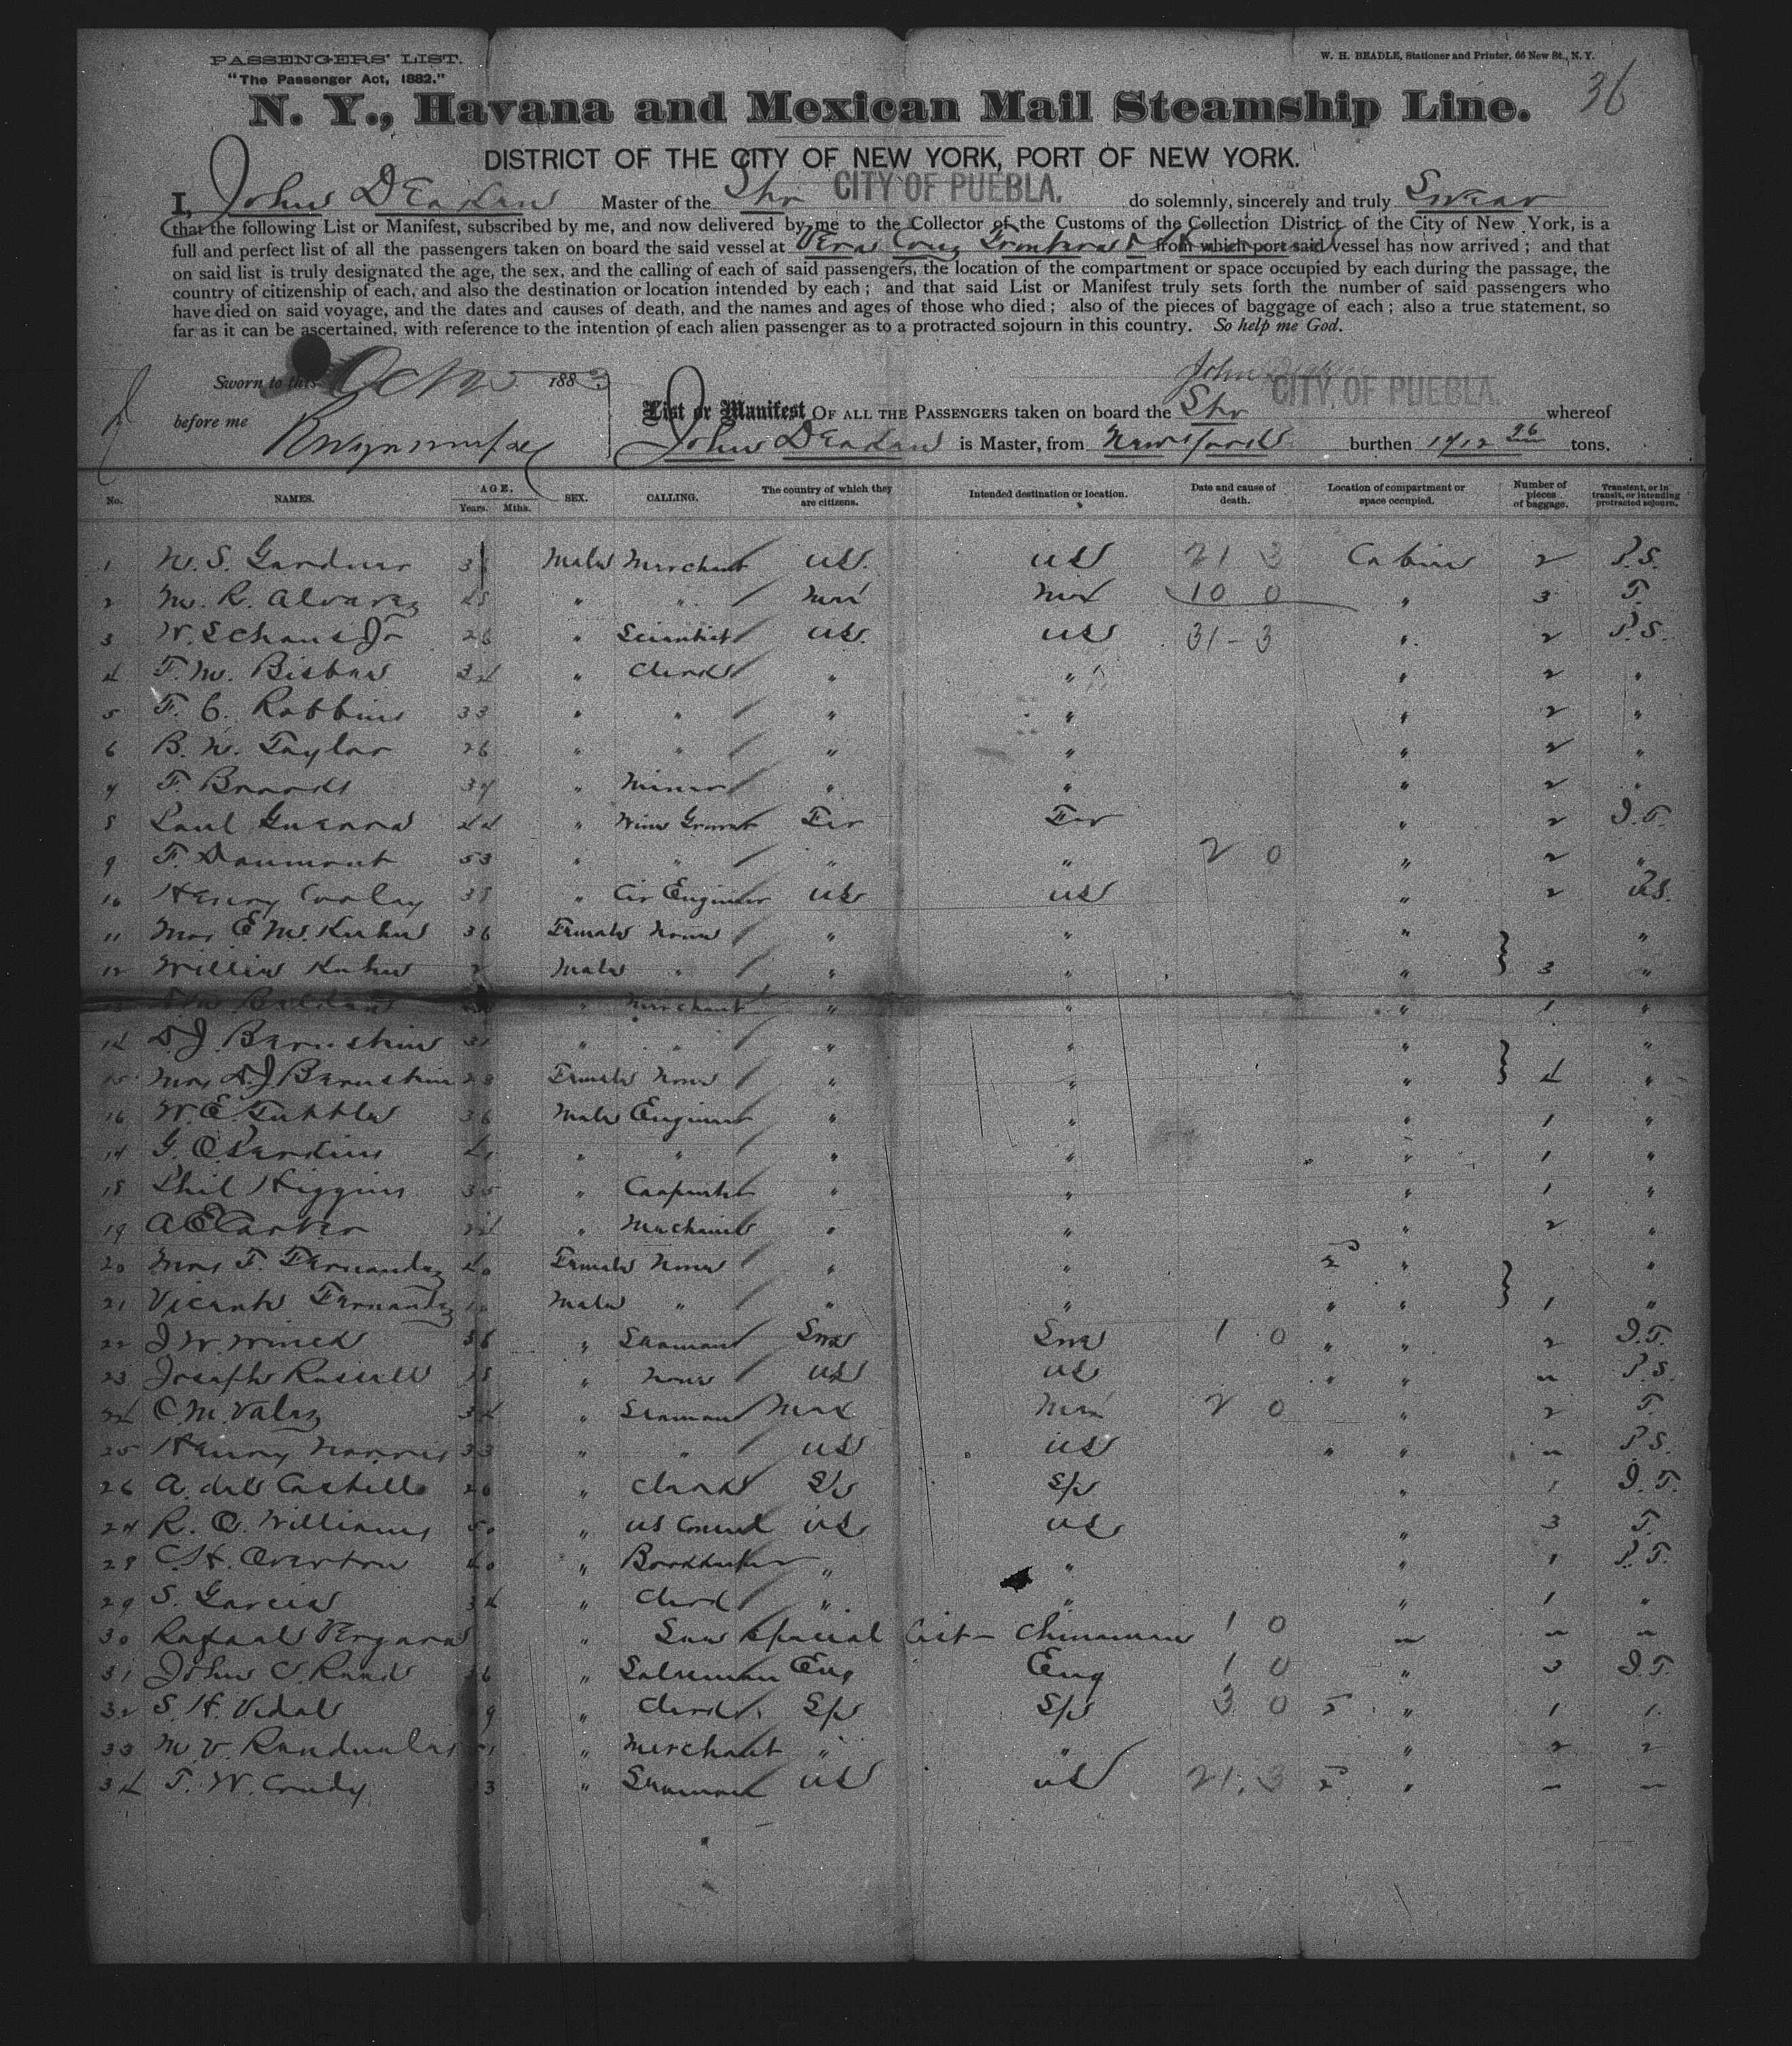 PASSENGERS' LIST.
"The Passenger Act, 1882."
W. H. BEADLE, Stationer and Printer, 66 New St., N. Y.
36
N. Y., Havana and Mexican Mail Steamship Line.
DISTRICT OF THE CITY OF NEW YORK, PORT OF NEW YORK.
I, John Deaken Master of the Str CITY OF PUEBLA. do solemnly, sincerely and truly Swear
that the following List or Manifest, subscribed by me, and now delivered by me to the Collector of the Customs of the Collection District of the City of New York, is a
full and perfect list of all the passengers taken on board the said vessel at Vera Cruz Frontera from which port said vessel has now arrived; and that
on said list is truly designated the age, the sex, and the calling of each of said passengers, the location of the compartment or space occupied by each during the passage, the
country of citizenship of each, and also the destination or location intended by each; and that said List or Manifest truly sets forth the number of said passengers who
have died on said voyage, and the dates and causes of death, and the names and ages of those who died; also of the pieces of baggage of each; also a true statement, so
far as it can be ascertained, with reference to the intention of each alien passenger as to a protracted sojourn in this country. So help me God.
Sworn to this Oct 188
before me
John Deaken
List or Manifest OF ALL THE PASSENGERS taken on board the Str CITY OF PUEBLA. whereof
John Deaken is Master, from New York burthen 1712 96 tons.
No. NAMES. AGE. Years. Mths. SEX. CALLING. The country of which they are citizens. Intended destination or location. Date and cause of death. Location of compartment or space occupied. Number of pieces of baggage. Transient, or in transit, or intending protracted sojourn.
1 W. S. Gardner Male Merchant US. US 21 3 Cabin 2 P.S.
2 M. R. Alvarez 45 " " Mex Mex 10 0 " 3 T.
3 W. Schaus Jr 26 " Scientist US. US 31-3 " 2 P.S.
4 F. M. Bisbee 34 " Clerk " " " 2 "
5 F. C. Robbins 33 " " " " " 2 "
6 B. W. Taylor 26 " " " " " 2 "
7 F. 37 " Miner " " " 2 "
8 Paul Guerra 44 " Wine Grower Fr Fr " 2 I.T.
9 F. Daumont 53 " " " " 2 0 " 2 "
10 Henry Cooley 38 " Civ Engineer US US " 2 P.S.
11 Mrs E M. Kuhn 36 Female None " " " "
12 Willie Kuhn 2 Male " " " " 3 "
13 " Merchant " " " 1 "
14 D. J. Bernstein " " " " " "
15 Mrs D. J Bernstein 28 Female None " " " 4 "
16 W. E Tuttle 36 Male Engineer " " " 1 "
17 G. O. " " " " " 1 "
18 Phil Higgins 35 " Carpenter " " " 1 "
19 A E Carter " Mechanic " " " 2 "
20 Mrs F. Fernandez 40 Female None " " " "
21 Vicente Fernandez Male " " " " " 1 "
22 J. W. Winch 36 " Seaman Swe Swe 1 0 " " 2 I.T.
23 Joseph Russell 18 " None US US " " — P.S.
24 C. M. Valez 34 " Seaman Mex Mex 2 0 " 2 T.
25 Henry Norris 33 " " US US " " — P.S.
26 A. del Castillo 26 " Clerk Sp Sp " 1 I.T.
27 R. O. Williams 50 " US Consul US US " 3 T.
28 C. H. Overton 40 " Bookkeeper " " " 1 P.T.
29 S. Garcia 34 " Clerk " " " 1 "
30 Rafael Vergara " See special list - Chinaman 1 0 — — —
31 John C. Rand 36 " Salesman Eng Eng 1 0 " 3 I.T.
32 S. H. Vidal 9 " Clerk Sp Sp 3 0 " 1 1
33 M. V. " Merchant " " " 2 2
34 T. W. Condy 3 " Seaman US US 21.3 " — —